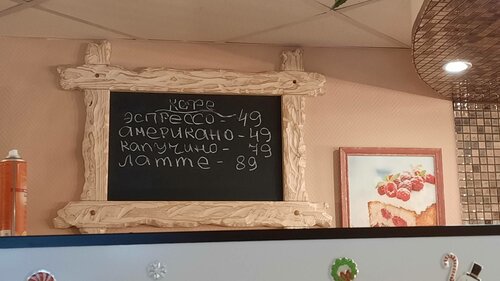 кофе
эспрессо - 49
американо - 49
капучино - 79
латте - 89